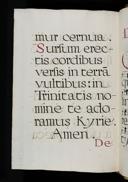 mur cernui.
Sursum erec-
tis cordibus
versis in terrã
vultibus: in
Trinitatis no-
mine te ado-
ramus Kyrie,
Amen.
De